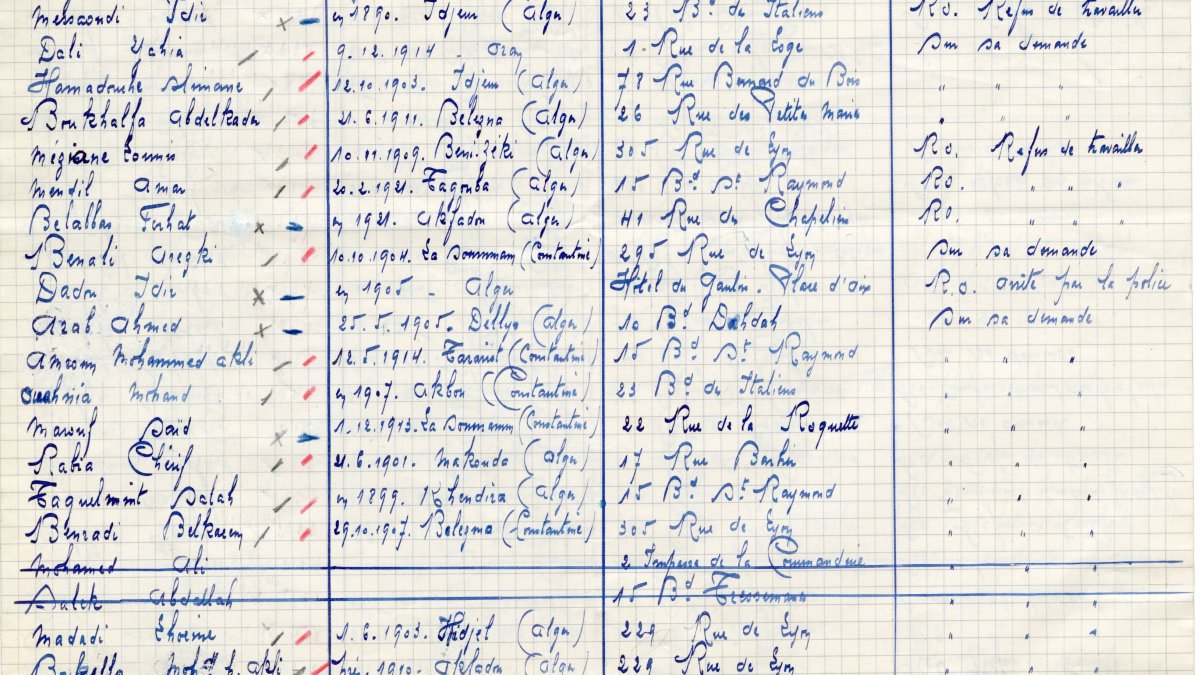 Messaoudi Idir en 1890. Idjeur (Alger) 23 Bd des Italiens R.O. Refus de travailler
Dali Yahia 9.12.1914 - Oran 1 - Rue de la Loge Sur sa demande
Hamadouche Slimane 12.10.1903. Idjeur (Alger) 78 Rue Bernard du Bois " " "
Boukhalfa Abdelkader 21.6.1911. Belezna (Alger) 26 Rue des Petites Maries " " "
Méziane Lounis 10.11.1909. Beni-Zéki (Alger) 305 Rue de Lyon R.O. Refus de travailler
Mendil Amar 20.2.1921. Tagouba (Alger) 15 Bd St Raymond R.O. " " "
Belabbas Ferhat en 1921. Akfadou (Alger) 41 Rue des Chapeliers R.O. " " "
Benali Arezki 10.10.1904. La Soummam (Constantine) 295 Rue de Lyon Sur sa demande
Dadou Idir en 1905 - Alger Hôtel du Gaulin. Place d'aix R.O. arrêté par la police
Arab Ahmed 25.5.1905. Dellys (Alger) 10 Bd Dahdah Sur sa demande
Ameoun Mohammed akli 12.5.1914. (Constantine) 15 Bd St Raymond " " "
Ouahnia Mohand en 1907. Akbou (Constantine) 23 Bd des Italiens " " "
Marouf Saïd 1.12.1913. La Soummam (Constantine) 22 Rue de la Roquette " " "
Rabia Chérif 21.6.1901. Makouda (Alger) 17 Rue Barthe " " "
Taguelmint Salah en 1899. Khendira (Alger) 15 Bd St Raymond " " "
Benradi Belkacem 29.10.1907. Belezma (Constantine) 305 Rue de Lyon " " "
Mohamed Ali 2 Impasse de la Commanderie " " "
Salek Abdallah 15 Bd " " "
Madadi Lhoeine 1.6.1903. Hidjel (Alger) 229 Rue de Lyon " " "
akli 1910. Akfadou (Alger) 229 Rue de Lyon " " "